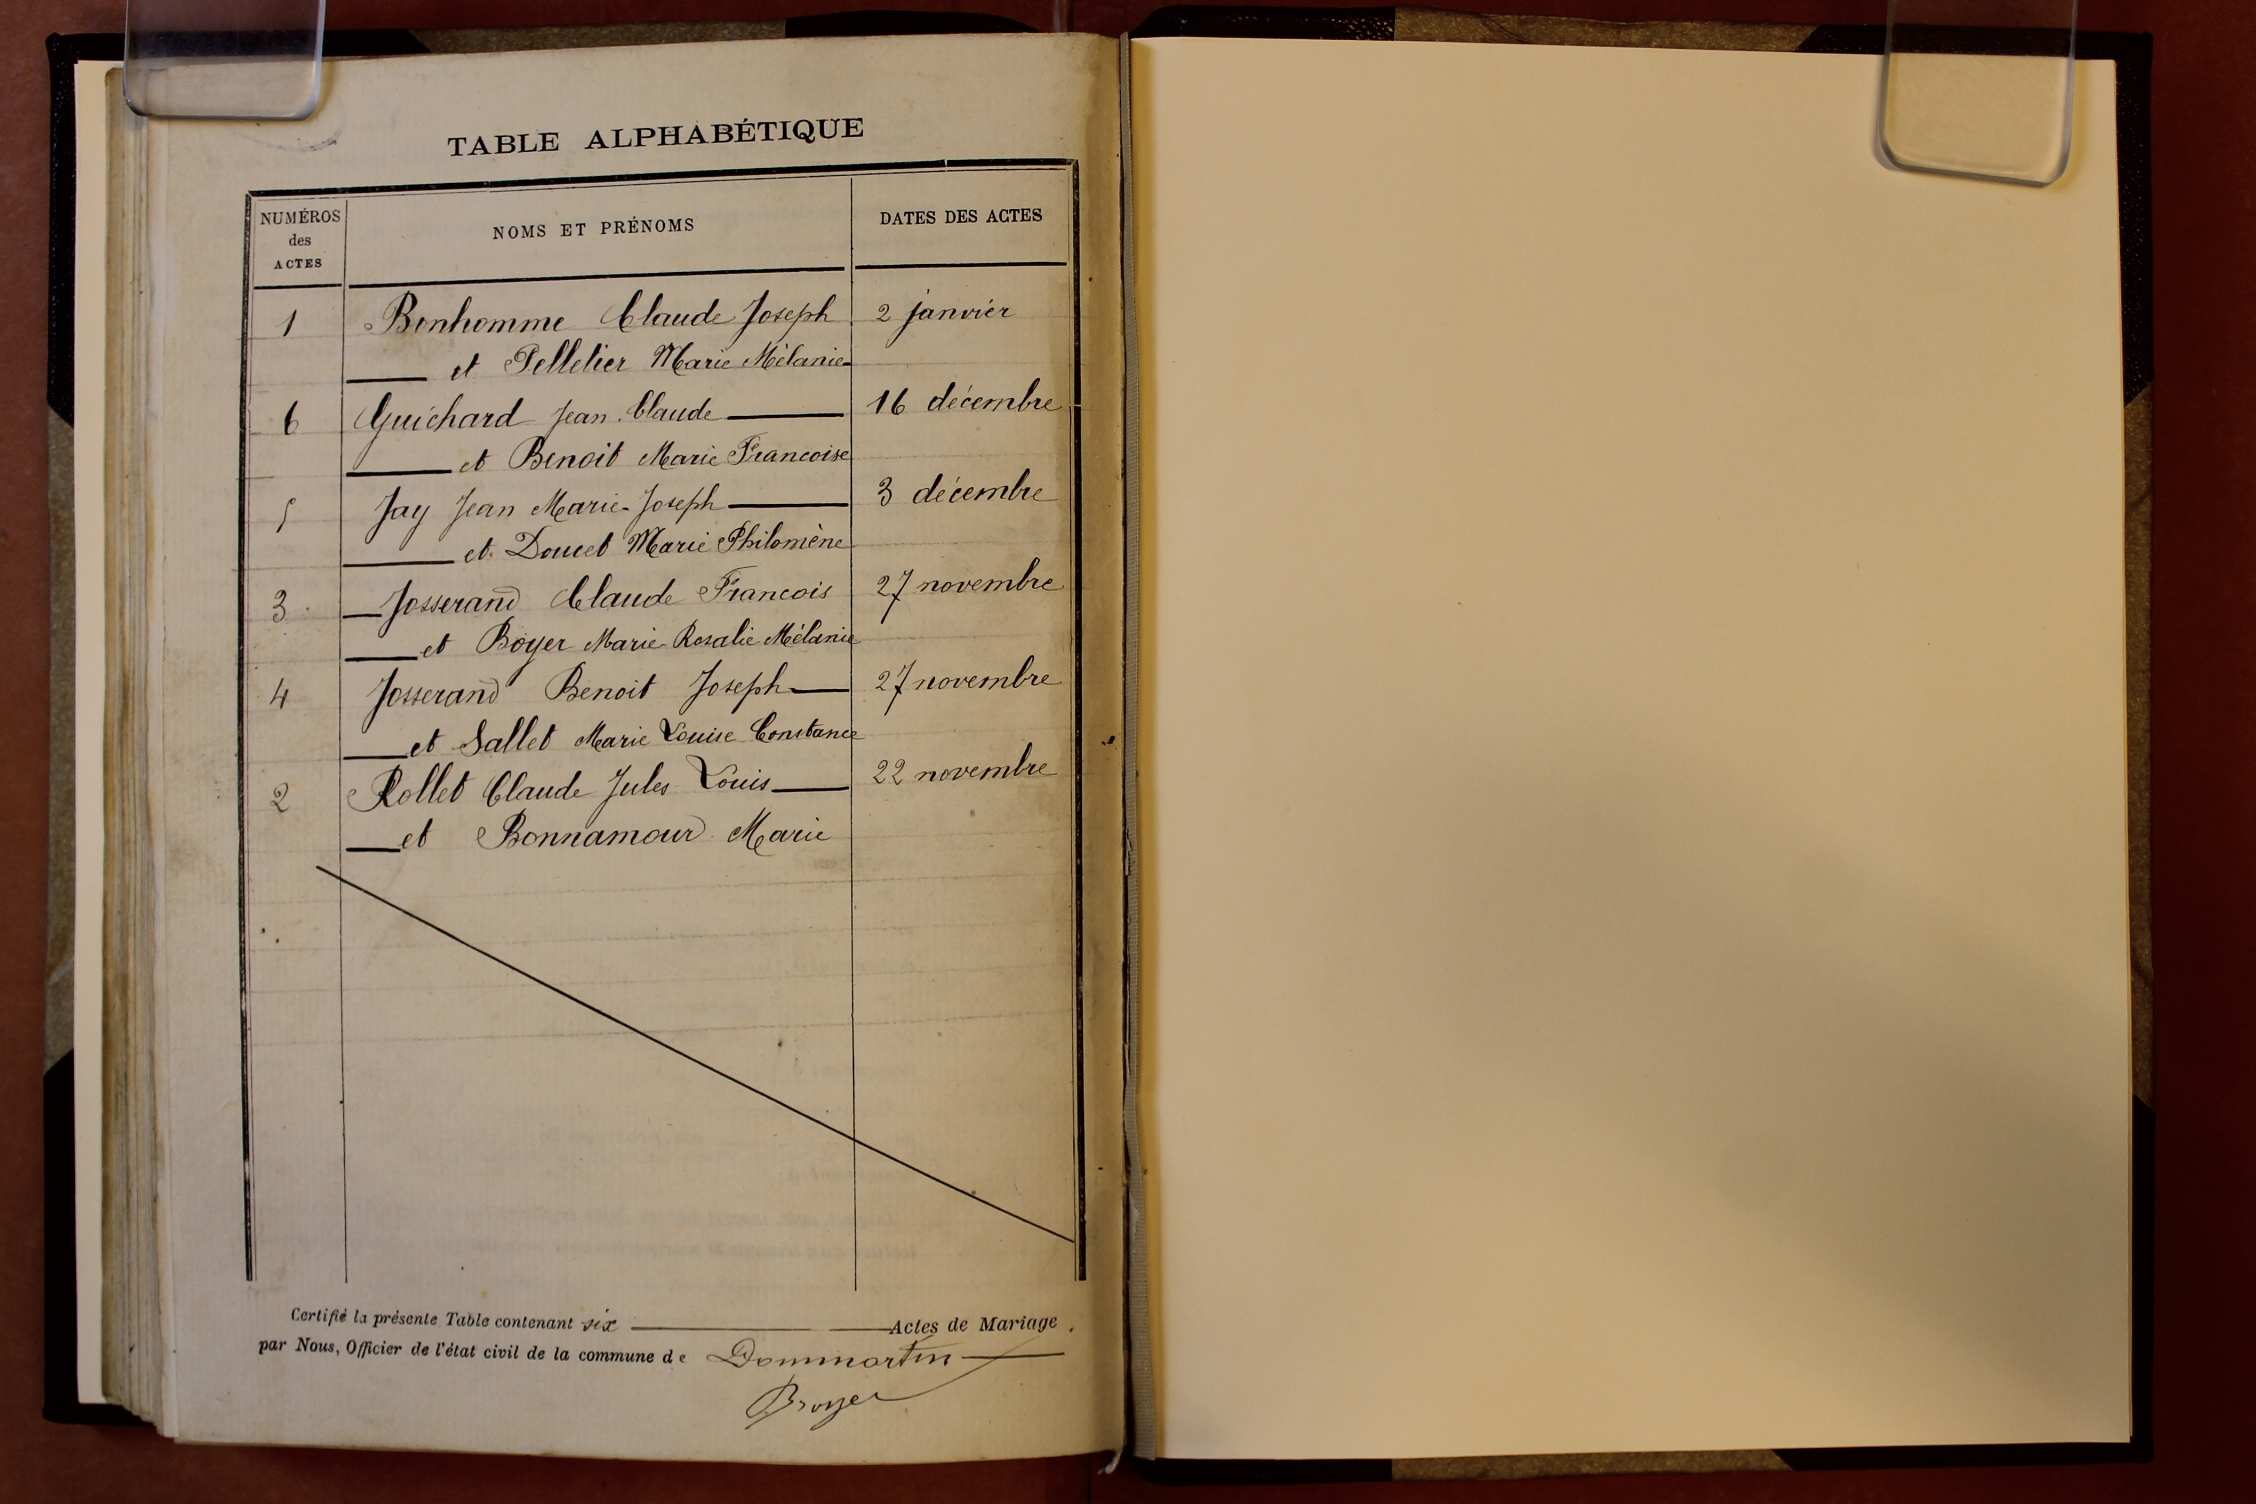 TABLE ALPHABÉTIQUE
NUMÉROS des ACTES NOMS ET PRÉNOMS DATES DES ACTES
1 Bonhomme Claude Joseph 2 janvier
et Pelletier Marie Mélanie
6 Guichard Jean Claude 16 décembre
et Benoit Marie Francoise
5 Jay Jean Marie Joseph 3 décembre
et Doucet Marie Philomène
3 Josserand Claude Francois 27 novembre
et Boyer Marie Rosalie Mélanie
4 Josserand Benoit Joseph 27 novembre
et Sallet Marie Louise Constance
2 Rollet Claude Jules Louis 22 novembre
et Bonnamour Marie
Certifié la présente Table contenant six Actes de Mariage
par Nous, Officier de l'état civil de la commune de Dommartin
Broyer